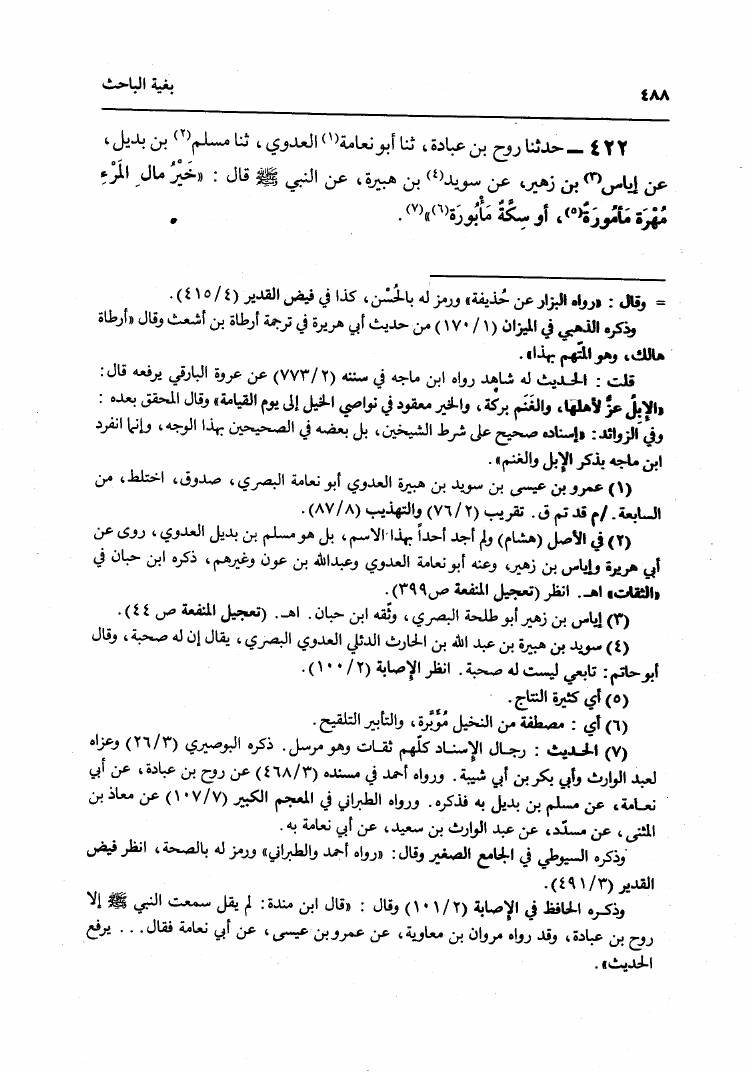 ٤٨٨
بغية الباحث
٤٢٢ ـ حدثنا روح بن عبادة، ثنا أبو نعامة(١) العدوي، ثنا مسلم(٢) بن بديل،
عن إياس(٣) بن زهير، عن سويد(٤) بن هبيرة، عن النبي ﷺ قال : «خَيْرُ مال المَرْءِ
مُهْرَة مَأمُورَةٌ(٥)، أو سِكَّةٌ مَأْبُورَة(٦)»(٧).
= وقال : «رواه البزار عن حُذيفة» ورمز له بالحُسْن، كذا في فيض القدير (٤١٥/٤).
وذكره الذهبي في الميزان (١٧٠/١) من حديث أبي هريرة في ترجمة أرطاة بن أشعث وقال «أرطاة
هالك، وهو المتّهم بهذا».
قلت : الحديث له شاهد رواه ابن ماجه في سننه (٧٧٣/٢) عن عروة البارقي يرفعه قال:
«الإبِلُ عزٌّ لأهلها، والغَنَم بركة، والخير معقود في نواصي الخيل إلى يوم القيامة» وقال المحقق بعده :
وفي الزوائد: «إسناده صحيح على شرط الشيخين، بل بعضه في الصحيحين بهذا الوجه، وإنما انفرد
ابن ماجه بذكر الإبل والغنم».
(١) عمرو بن عيسى بن سويد بن هبيرة العدوي أبو نعامة البصري، صدوق، اختلط، من
السابعة. /م قد تم ق. تقريب (٧٦/٢) والتهذيب (٨٧/٨).
(٢) في الأصل (هشام) ولم أجد أحداً بهذا الاسم، بل هو مسلم بن بديل العدوي، روى عن
أبي هريرة وإياس بن زهير، وعنه أبو نعامة العدوي وعبدالله بن عون وغيرهم، ذكره ابن حبان في
«الثقات» اهـ. انظر (تعجيل المنفعة ص٣٩٩).
(٣) إياس بن زهير أبو طلحة البصري، وثّقه ابن حبان. اهـ. (تعجيل المنفعة ص ٤٤).
(٤) سويد بن هبيرة بن عبد الله بن الحارث الدئلي العدوي البصري، يقال إن له صحبة، وقال
أبو حاتم: تابعي ليست له صحبة. انظر الإصابة (١٠٠/٢).
(٥) أي كثيرة النتاج.
(٦) أي : مصطفة من النخيل مُؤَبَّرة، والتأبير التلقيح.
(٧) الحديث : رجال الإسناد كلّهم ثقات وهو مرسل. ذكره البوصيري (٢٦/٣) وعزاه
لعبد الوارث وأبي بكر بن أبي شيبة. ورواه أحمد في مسنده (٤٦٨/٣) عن روح بن عبادة، عن أبي
نعامة، عن مسلم بن بديل به فذكره. ورواه الطبراني في المعجم الكبير (١٠٧/٧) عن معاذ بن
المثنى، عن مسدّد، عن عبد الوارث بن سعيد، عن أبي نعامة به.
وذكره السيوطي في الجامع الصغير وقال: «رواه أحمد والطبراني» ورمز له بالصحة، انظر فيض
القدير (٤٩١/٣).
وذكره الحافظ في الإصابة (١٠١/٢) وقال : «قال ابن مندة: لم يقل سمعت النبي ﷺ إلا
روح بن عبادة، وقد رواه مروان بن معاوية، عن عمرو بن عيسى، عن أبي نعامة فقال... يرفع
الحديث».